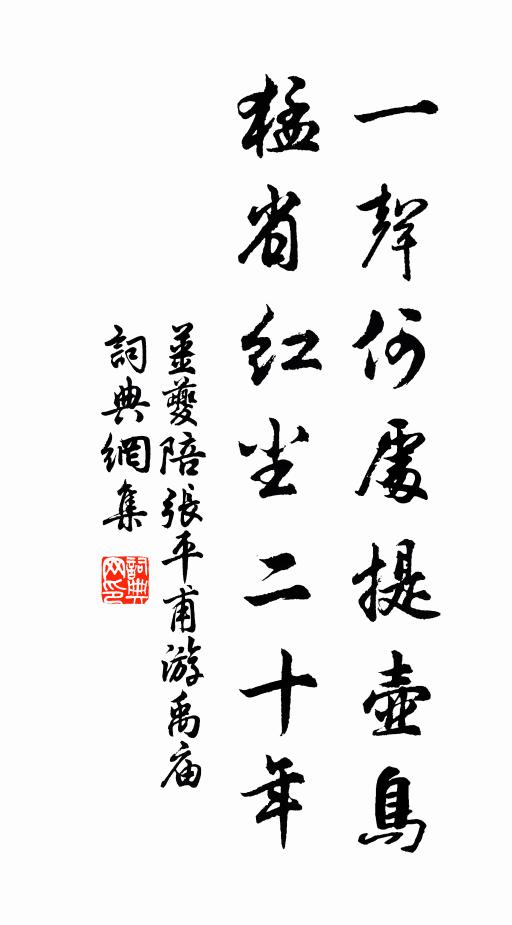 一聲何處提壺鳥
猛省紅尘二十年
姜夔陪張平甫游禹庙
詞典網集
詞典网印